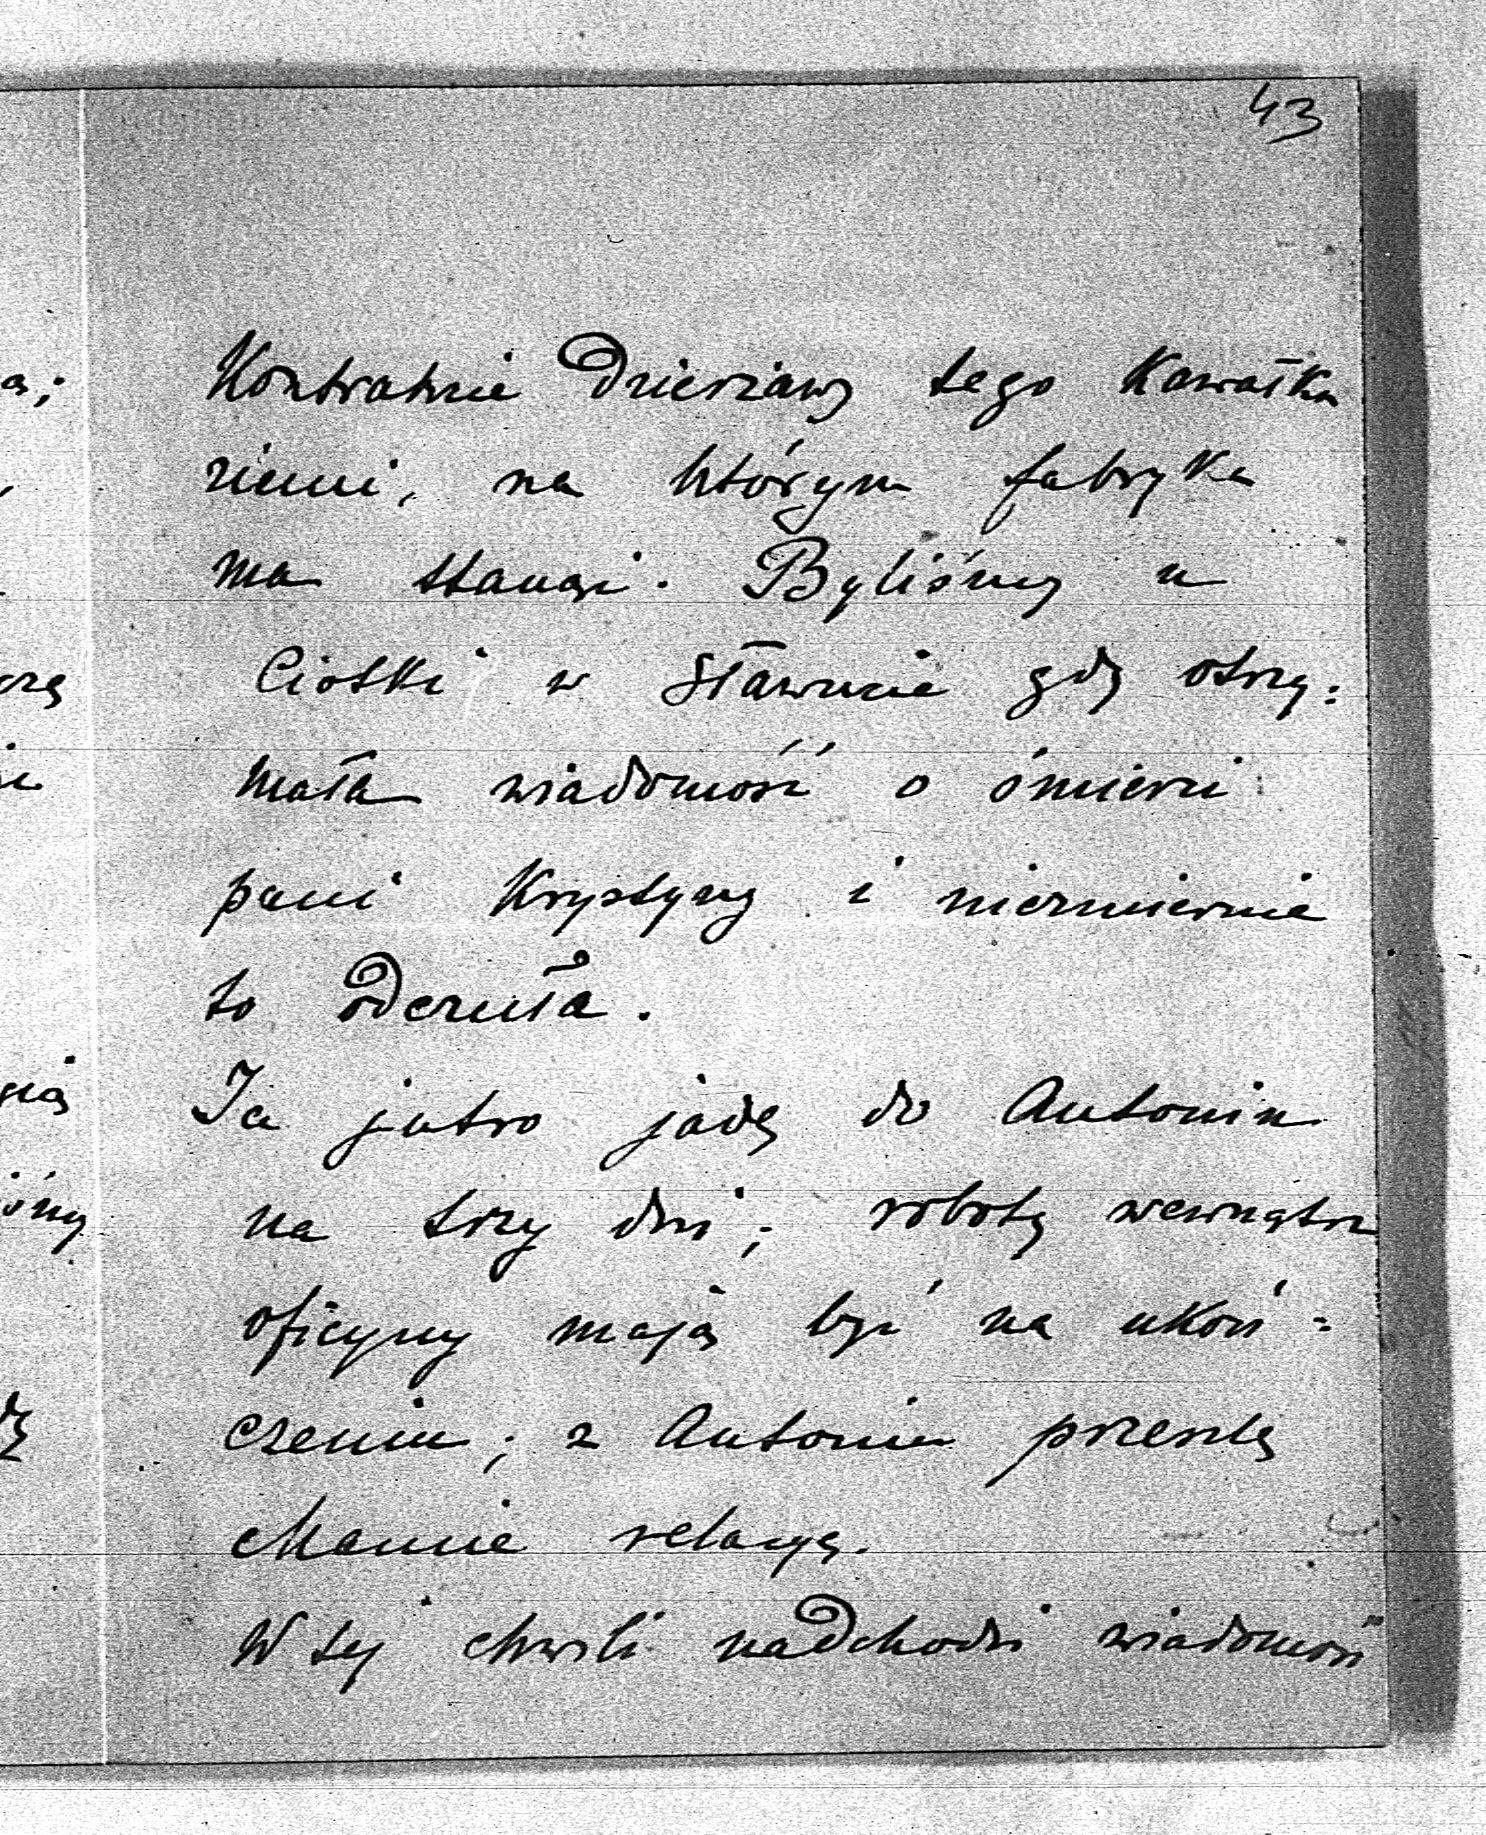 43
Kontrakcie Dzierżawy tego Kawałka
ziemi, na którym fabryka
ma stanąć. Byliśmy u
Ciotki w Sławucie gdy otrzy=
mała wiadomość o śmierci
pani Krystyny i niezmiernie
to odczuła.
Ja jutro jadę do Antonin
na trzy dni; roboty wewnątrz
oficyny mają być na ukoń=
czeniu; z Antonin prześlę
Mamie relacyę.
W tej chwili nadchodzi wiadomość